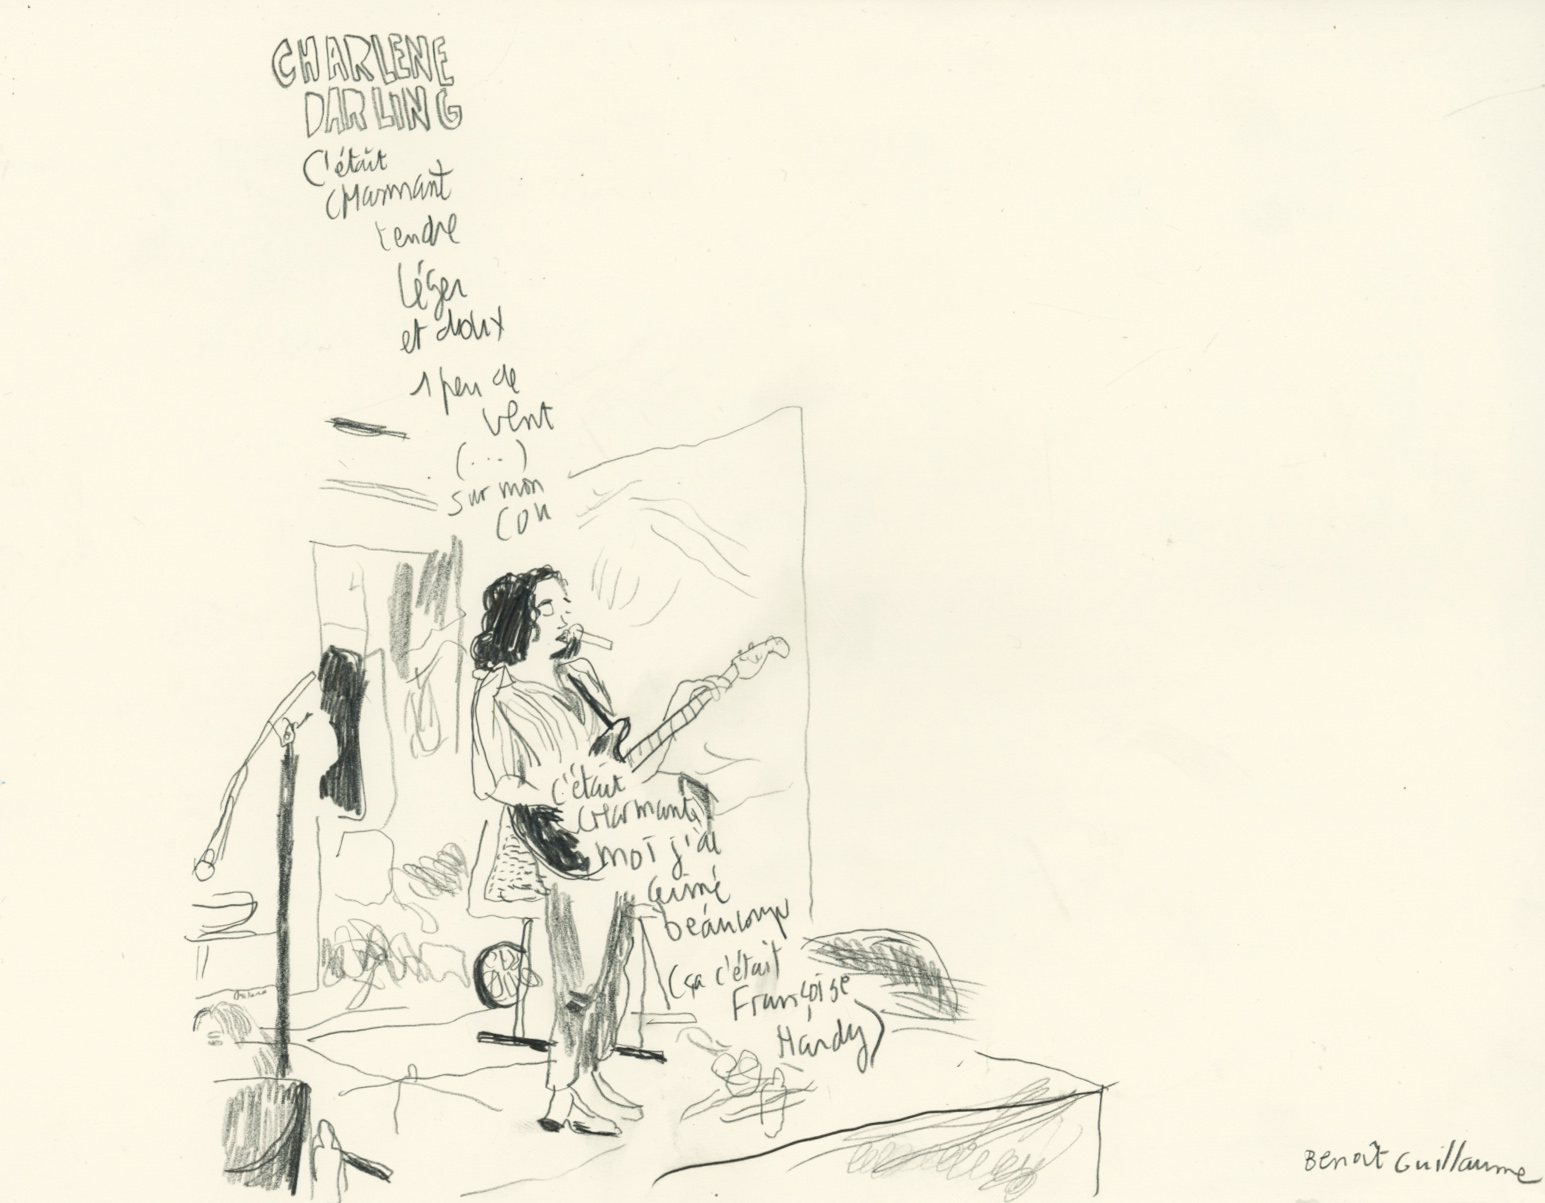 CHARLENE
DARLING
C'était
CHarmant
tendre
léger
et doux
1 peu de
vent
(...)
sur mon
cou
c'était
CHarmant,
moi j'ai
aimé
beaucoup
(ça c'était
Françoise
Hardy)
Benoît Guillaume